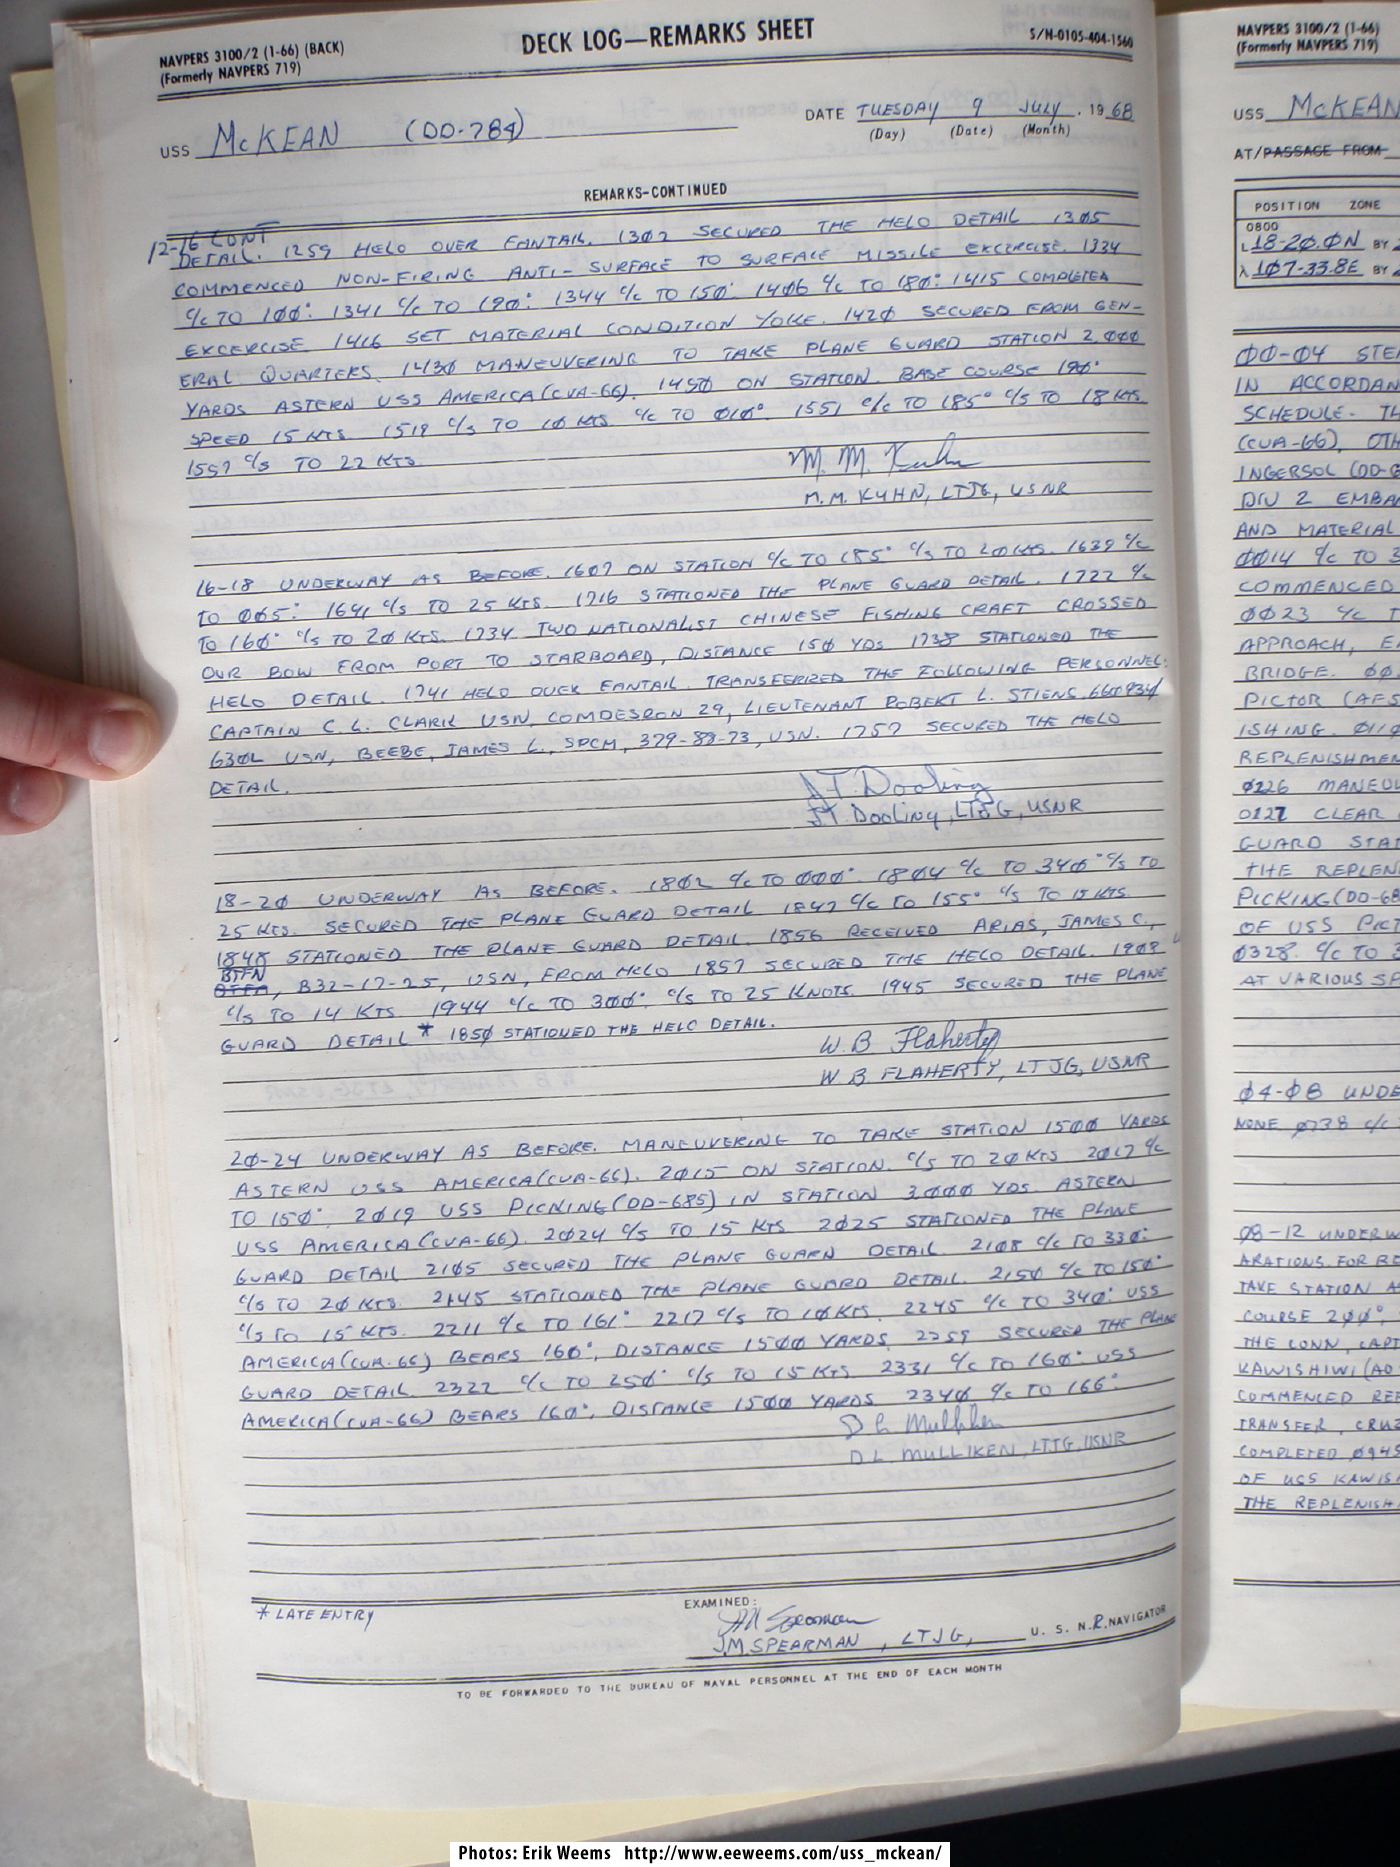 NAVPERS 3100/2 (1-66) (BACK)
(Formerly NAVPERS 719)
DECK LOG—REMARKS SHEET
S/N-0105-404-1560
USS McKEAN (DD-784)
DATE TUESDAY 9 JULY, 1968
(Day) (Date) (Month)
REMARKS-CONTINUED
12-16 CONT
DETAIL. 1259 HELO OVER FANTAIL. 1302 SECURED THE HELO DETAIL 1305
COMMENCED NON-FIRING ANTI-SURFACE TO SURFACE MISSILE EXCERCISE. 1334
C/C TO 100°. 1341 C/C TO 190°. 1344 C/C TO 150°. 1406 C/C TO 180°. 1415 COMPLETED
EXCERCISE 1416 SET MATERIAL CONDITION YOKE. 1420 SECURED FROM GEN-
ERAL QUARTERS. 1430 MANEUVERING TO TAKE PLANE GUARD STATION 2,000
YARDS ASTERN USS AMERICA (CVA-66). 1450 ON STATION. BASE COURSE 190°
SPEED 15 KTS 1519 C/S TO 10 KTS C/C TO 010°. 1551 C/C TO 185° C/S TO 18 KTS.
1557 C/S TO 22 KTS.
M. M. Kuhn
M.M. KUHN, LTJG, USNR
16-18 UNDERWAY AS BEFORE. 1607 ON STATION C/C TO 185° C/S TO 20 KTS. 1639 C/C
TO 065°. 1641 C/S TO 25 KTS. 1716 STATIONED THE PLANE GUARD DETAIL. 1722 C/C
TO 160° C/S TO 20 KTS. 1734 TWO NATIONALIST CHINESE FISHING CRAFT CROSSED
OUR BOW FROM PORT TO STARBOARD, DISTANCE 150 YDS 1738 STATIONED THE
HELO DETAIL. 1741 HELO OVER FANTAIL. TRANSFERRED THE FOLLOWING PERSONNEL:
CAPTAIN C. L. CLARK USN, COMDESRON 29, LIEUTENANT ROBERT L. STIENS, 660934/
6302 USN, BEEBE, JAMES L., SPCM, 379-88-73, USN. 1757 SECURED THE HELO
DETAIL.
J T Dooling
J.T. Dooling, LTJG, USNR
18-20 UNDERWAY AS BEFORE. 1802 C/C TO 000° 1804 C/C TO 340° C/S TO
25 KTS. SECURED THE PLANE GUARD DETAIL 1847 C/C TO 155° C/S TO 15 KTS
1848 STATIONED THE PLANE GUARD DETAIL. 1856 RECEIVED ARIAS, JAMES C.,
BTFN
BTFA, B32-17-25, USN, FROM HELO 1857 SECURED THE HELO DETAIL. 1909
C/S TO 14 KTS 1944 C/C TO 300°. C/S TO 25 KNOTS. 1945 SECURED THE PLANE
GUARD DETAIL * 1850 STATIONED THE HELO DETAIL.
W. B Flaherty
W B FLAHERTY, LTJG, USNR
20-24 UNDERWAY AS BEFORE. MANEUVERING TO TAKE STATION 1500 YARDS
ASTERN USS AMERICA (CVA-66). 2015 ON STATION. C/S TO 20 KTS 2017 C/C
TO 150°. 2019 USS PICKING (DD-685) IN STATION 3,000 YDS. ASTERN
USS AMERICA (CVA-66). 2024 C/S TO 15 KTS 2025 STATIONED THE PLANE
GUARD DETAIL 2105 SECURED THE PLANE GUARD DETAIL 2108 C/C TO 330°.
C/S TO 20 KTS. 2145 STATIONED THE PLANE GUARD DETAIL. 2150 C/C TO 150°
C/S TO 15 KTS. 2211 C/C TO 161° 2217 C/S TO 10 KTS. 2245 C/C TO 340°. USS
AMERICA (CVA-66) BEARS 160°, DISTANCE 1500 YARDS. 2259 SECURED THE PLANE
GUARD DETAIL 2322 C/C TO 250° C/S TO 15 KTS 2331 C/C TO 160° USS
AMERICA (CVA-66) BEARS 160°, DISTANCE 1500 YARDS 2340 C/C TO 166°.
D L Mulliken
D.L. MULLIKEN, LTJG, USNR
* LATE ENTRY
EXAMINED:
JM Spearman
J.M. SPEARMAN, LTJG, U. S. N.R. NAVIGATOR
TO BE FORWARDED TO THE BUREAU OF NAVAL PERSONNEL AT THE END OF EACH MONTH
NAVPERS 3100/2 (1-66)
(Formerly NAVPERS 719)
USS McKEAN
AT/PASSAGE FROM
POSITION ZONE
0800
L 18-20.0N BY
λ 107-33.8E BY
00-04 STE
IN ACCORDAN
SCHEDULE. TH
(CVA-66), OTH
INGERSOL (DD-6
DIV 2 EMBA
AND MATERIAL
0014 C/C TO 3
COMMENCED
0023 C/C T
APPROACH, E
BRIDGE. 00
PICTOR (AFS
ISHING. 011
REPLENISHMEN
0226 MANEUV
0227 CLEAR
GUARD STAT
THE REPLEN
PICKING (DD-68
OF USS PICT
0328. C/C TO 3
AT VARIOUS SP
04-08 UNDE
NONE 0738 C/C
08-12 UNDERW
ARATIONS FOR RE
TAKE STATION A
COURSE 200°,
THE CONN, CAPT
KAWISHIWI (AO
COMMENCED REF
TRANSFER, CRUZ
COMPLETED 0945
OF USS KAWIS
THE REPLENISH
Photos: Erik Weems http://www.eeweems.com/uss_mckean/